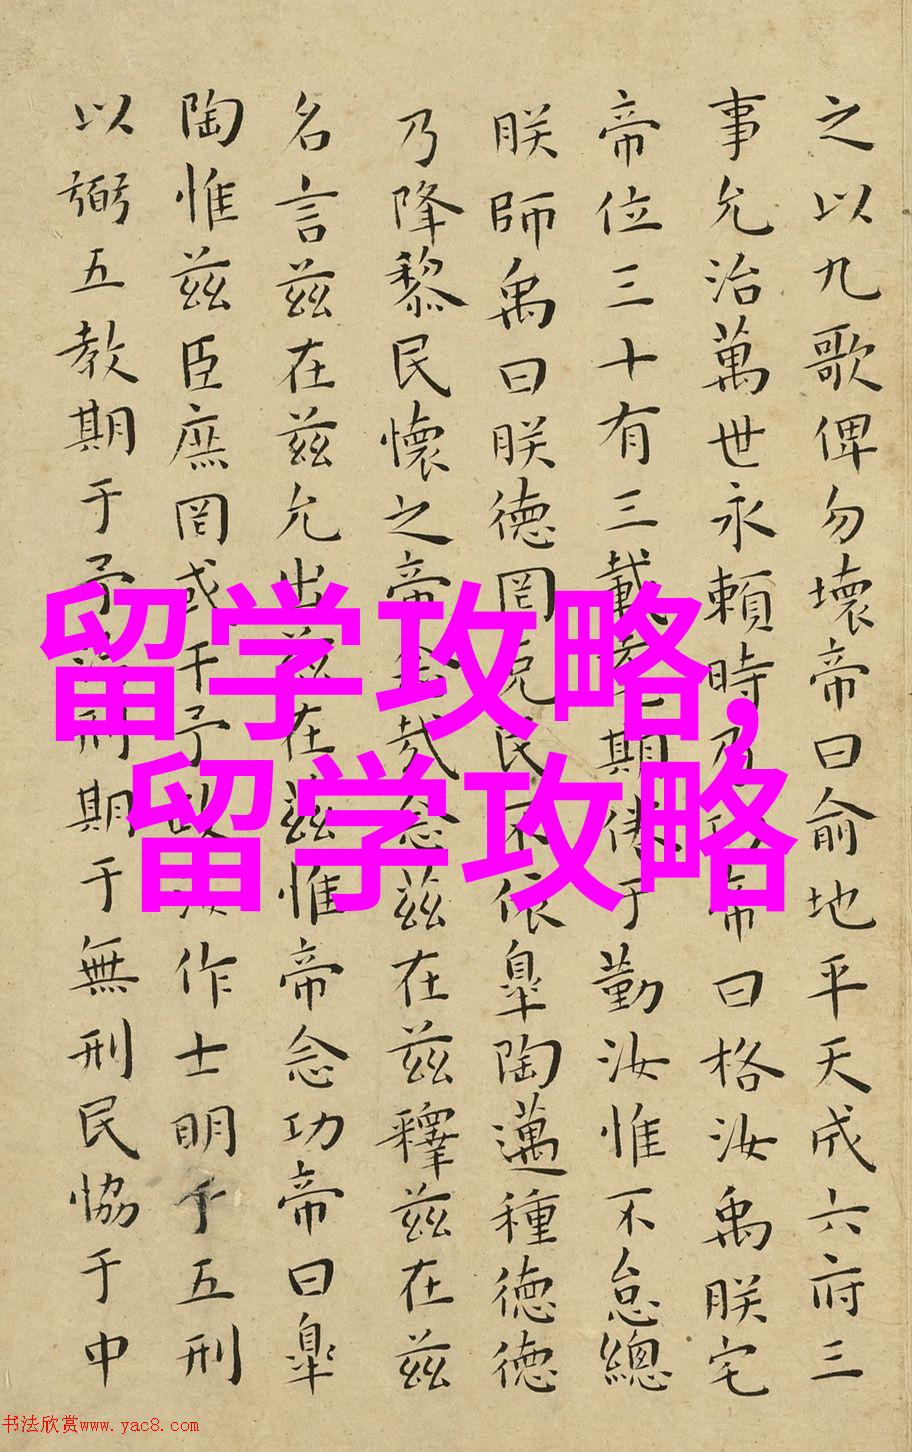 之以九歌俾勿壞帝曰俞地平天成六府三
事允治萬世永賴時乃帝曰格汝禹朕宅
帝位三十有三載期倦于勤汝惟不怠總
朕師禹曰朕德罔克民不依皐陶邁種德德
乃降黎民懷之帝念哉念茲在茲釋茲在茲
名言茲在茲允出茲在茲惟帝念功帝曰皐
陶惟茲臣庶罔或干予政作士明于五刑
以弼五教期于予刑期于無刑民協于中
留学攻略,
留学攻略
书法欣赏www.yac8.com